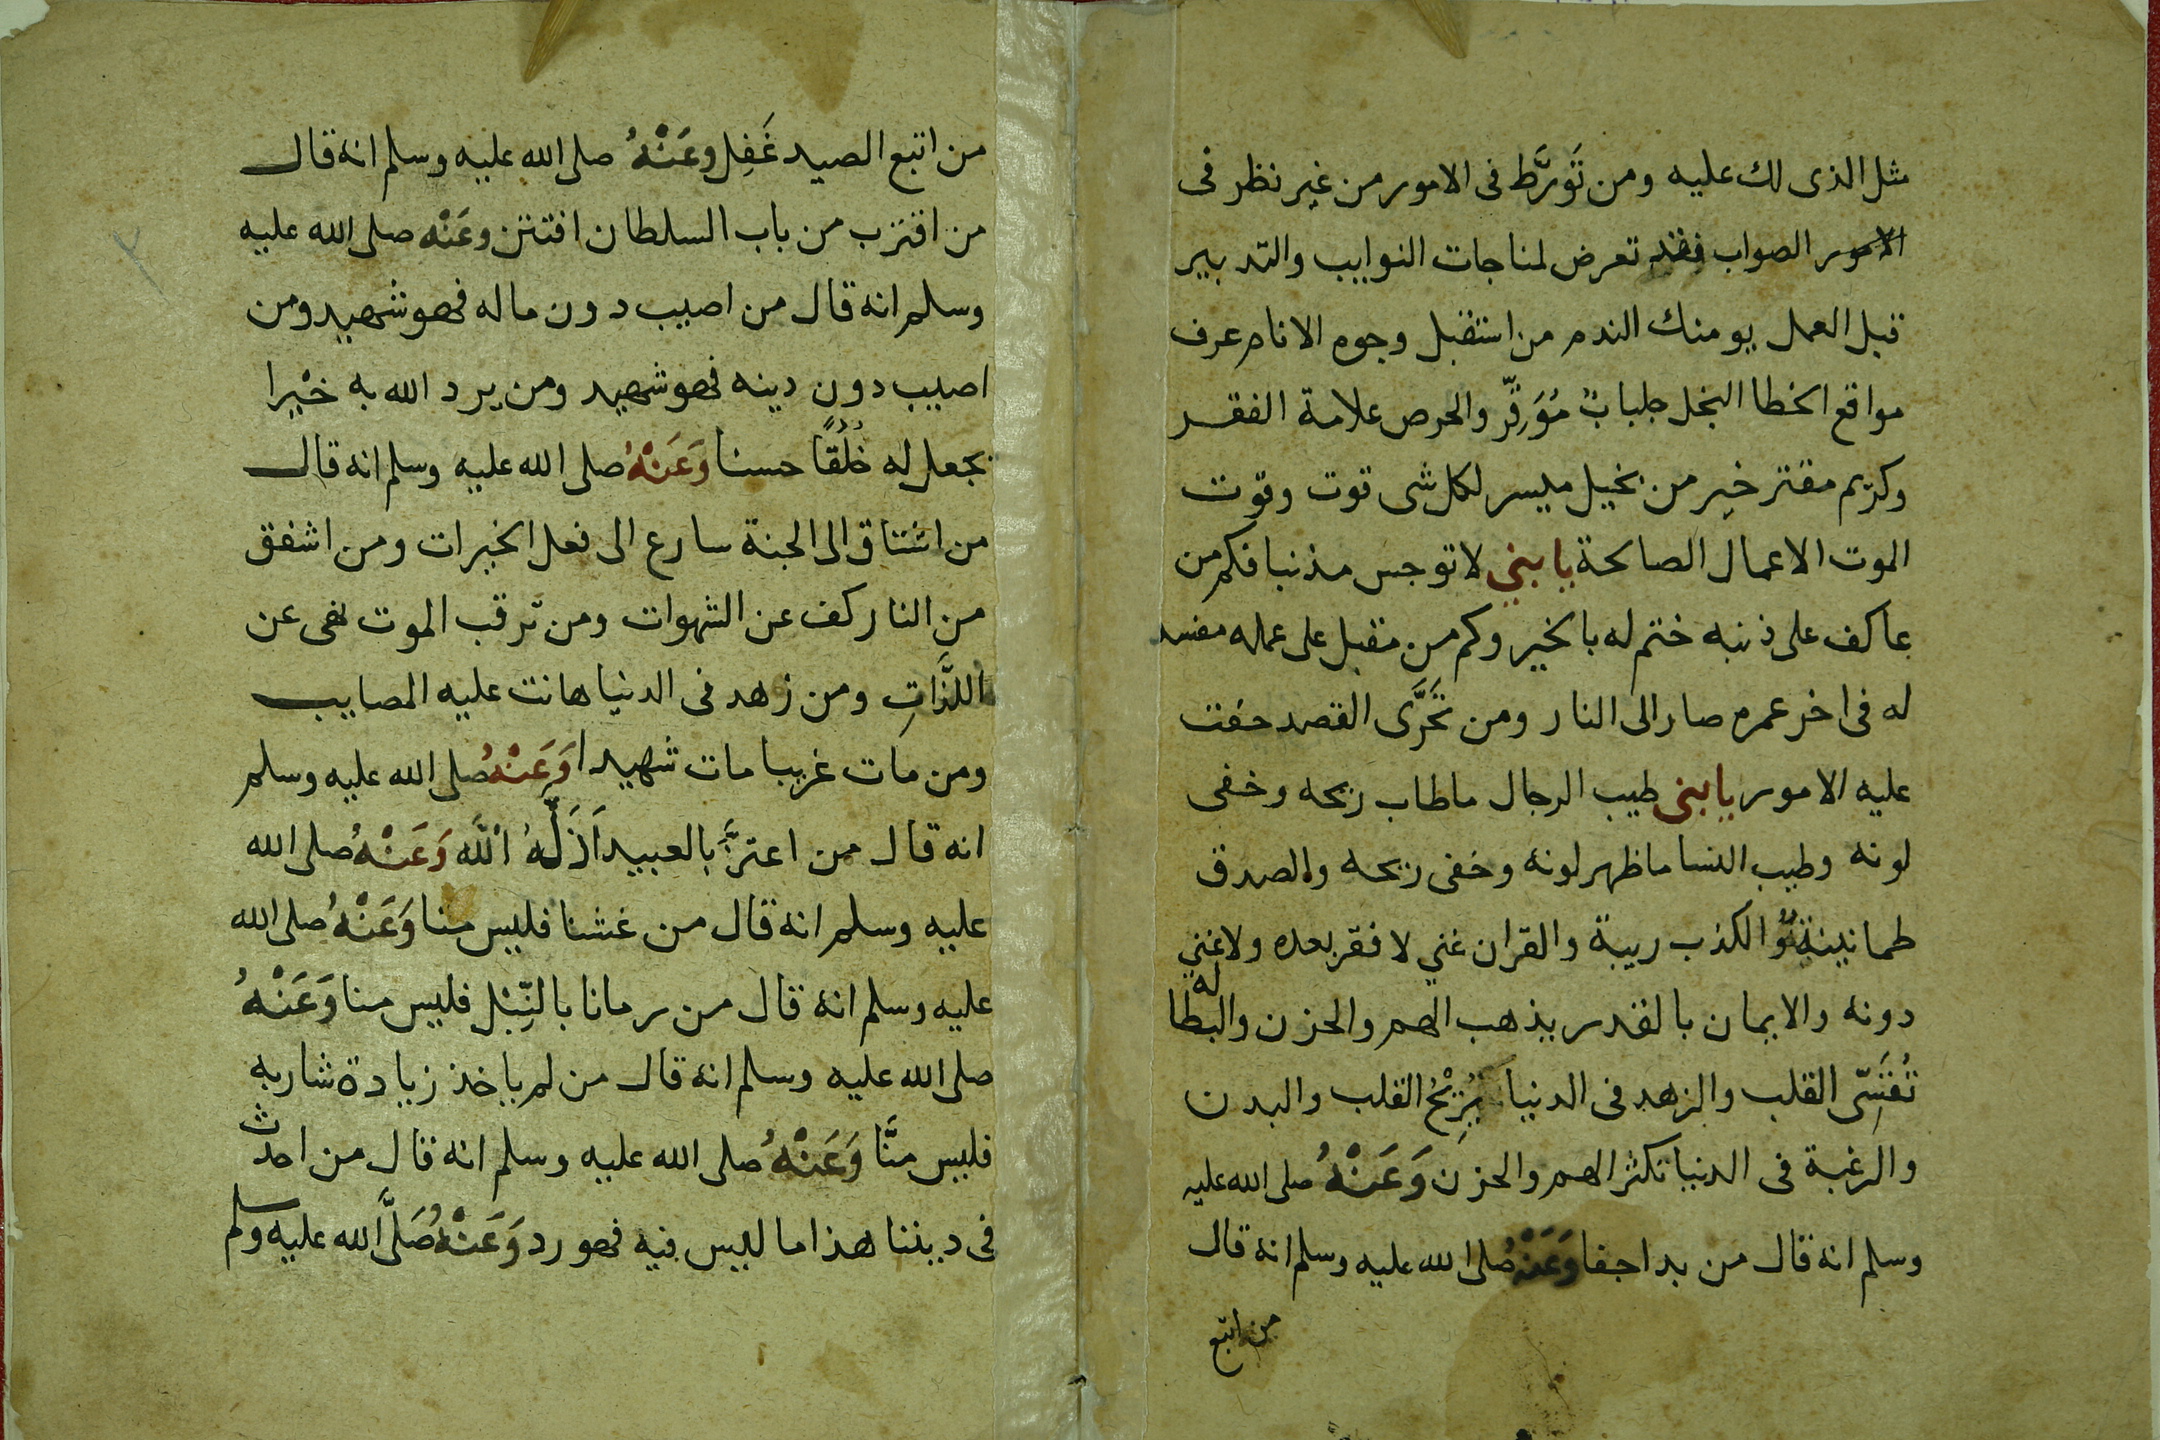 مثل الذى لك عليه ومن تَوَرَّط فى الامور من غير نظر فى
الصواب فقد تعرض لمناجات النوايب والتدبير
قبل العمل يومنك الندم من استقبل وجوه الانام عرف
مواقع الخطا البخل جلبابٌ والحرص علامة الفقر
وكريم مقتر خير من بخيل ميسر لكل شى قوت وقوت
الموت الاعمال الصالحة يا بني لا توجس مذنبا فكم من
عاكف على ذنبه ختم له بالخير وكم من مقبل على عمله مفسد
له فى اخر عمره صار الى النار ومن تَحَرَّى القصد خفت
عليه الامور يا بنى طيب الرجال ما طاب ريحه وخفى
لونه وطيب النسا ما ظهر لونه وخفى ريحه والصدق
طمانينة والكذب ريبة والقران غني لا فقر بعده ولا غني له
دونه والايمان بالقدر يذهب الهم والحزن والبطا
تُقَسِّى القلب والزهد فى الدنيا يُرِيْحُ القلب والبدن
والرغبة فى الدنيا تكثر الهم والحزن وَعَنْهُ صلى الله عليه
وسلم انه قال من بدا جفا وَعَنْهُ صلى الله عليه وسلم انه قال
من اتبع
من اتبع الصيد غَفِل وعَنْهُ صلى الله عليه وسلم انه قال
من اقترب من باب السلطان افتتن وعَنْه صلى الله عليه
وسلم انه قال من اصيب دون ماله فهو شهيد ومن
اصيب دون دينه فهو شهيد ومن يرد الله به خيْرا
يجعل له خُلُقًا حسنا وَعَنْهُ صلى الله عليه وسلم انه قال
من اشتاق الى الجنة سارع الى فعل الخيرات ومن اشفق
من النار كف عن الشهوات ومن ترقب الموت لهى عن
اللذَّاتِ ومن زهد فى الدنيا هانت عليه المصايب
ومن مات غريبا مات شهيدا وَعَنْهُ صلى الله عليه وسلم
انه قال من اعتزَّ بالعبيد اَذَلَّهُ اللَّه وَعَنْهُ صلى الله
عليه وسلم انه قال من غشنا فليس منا وَعَنْهُ صلى الله
عليه وسلم انه قال من رمانا بالنَّبْل فليس منا وَعَنْهُ
صلى الله عليه وسلم انه قال من لم ياخذ زيادة شاربه
فليس منَّا وَعَنْهُ صلى الله عليه وسلم انه قال من احدث
فى ديننا هذا ما ليس فيه فهو رد وَعَنْهُ صَلَّى الله عليه وسلم